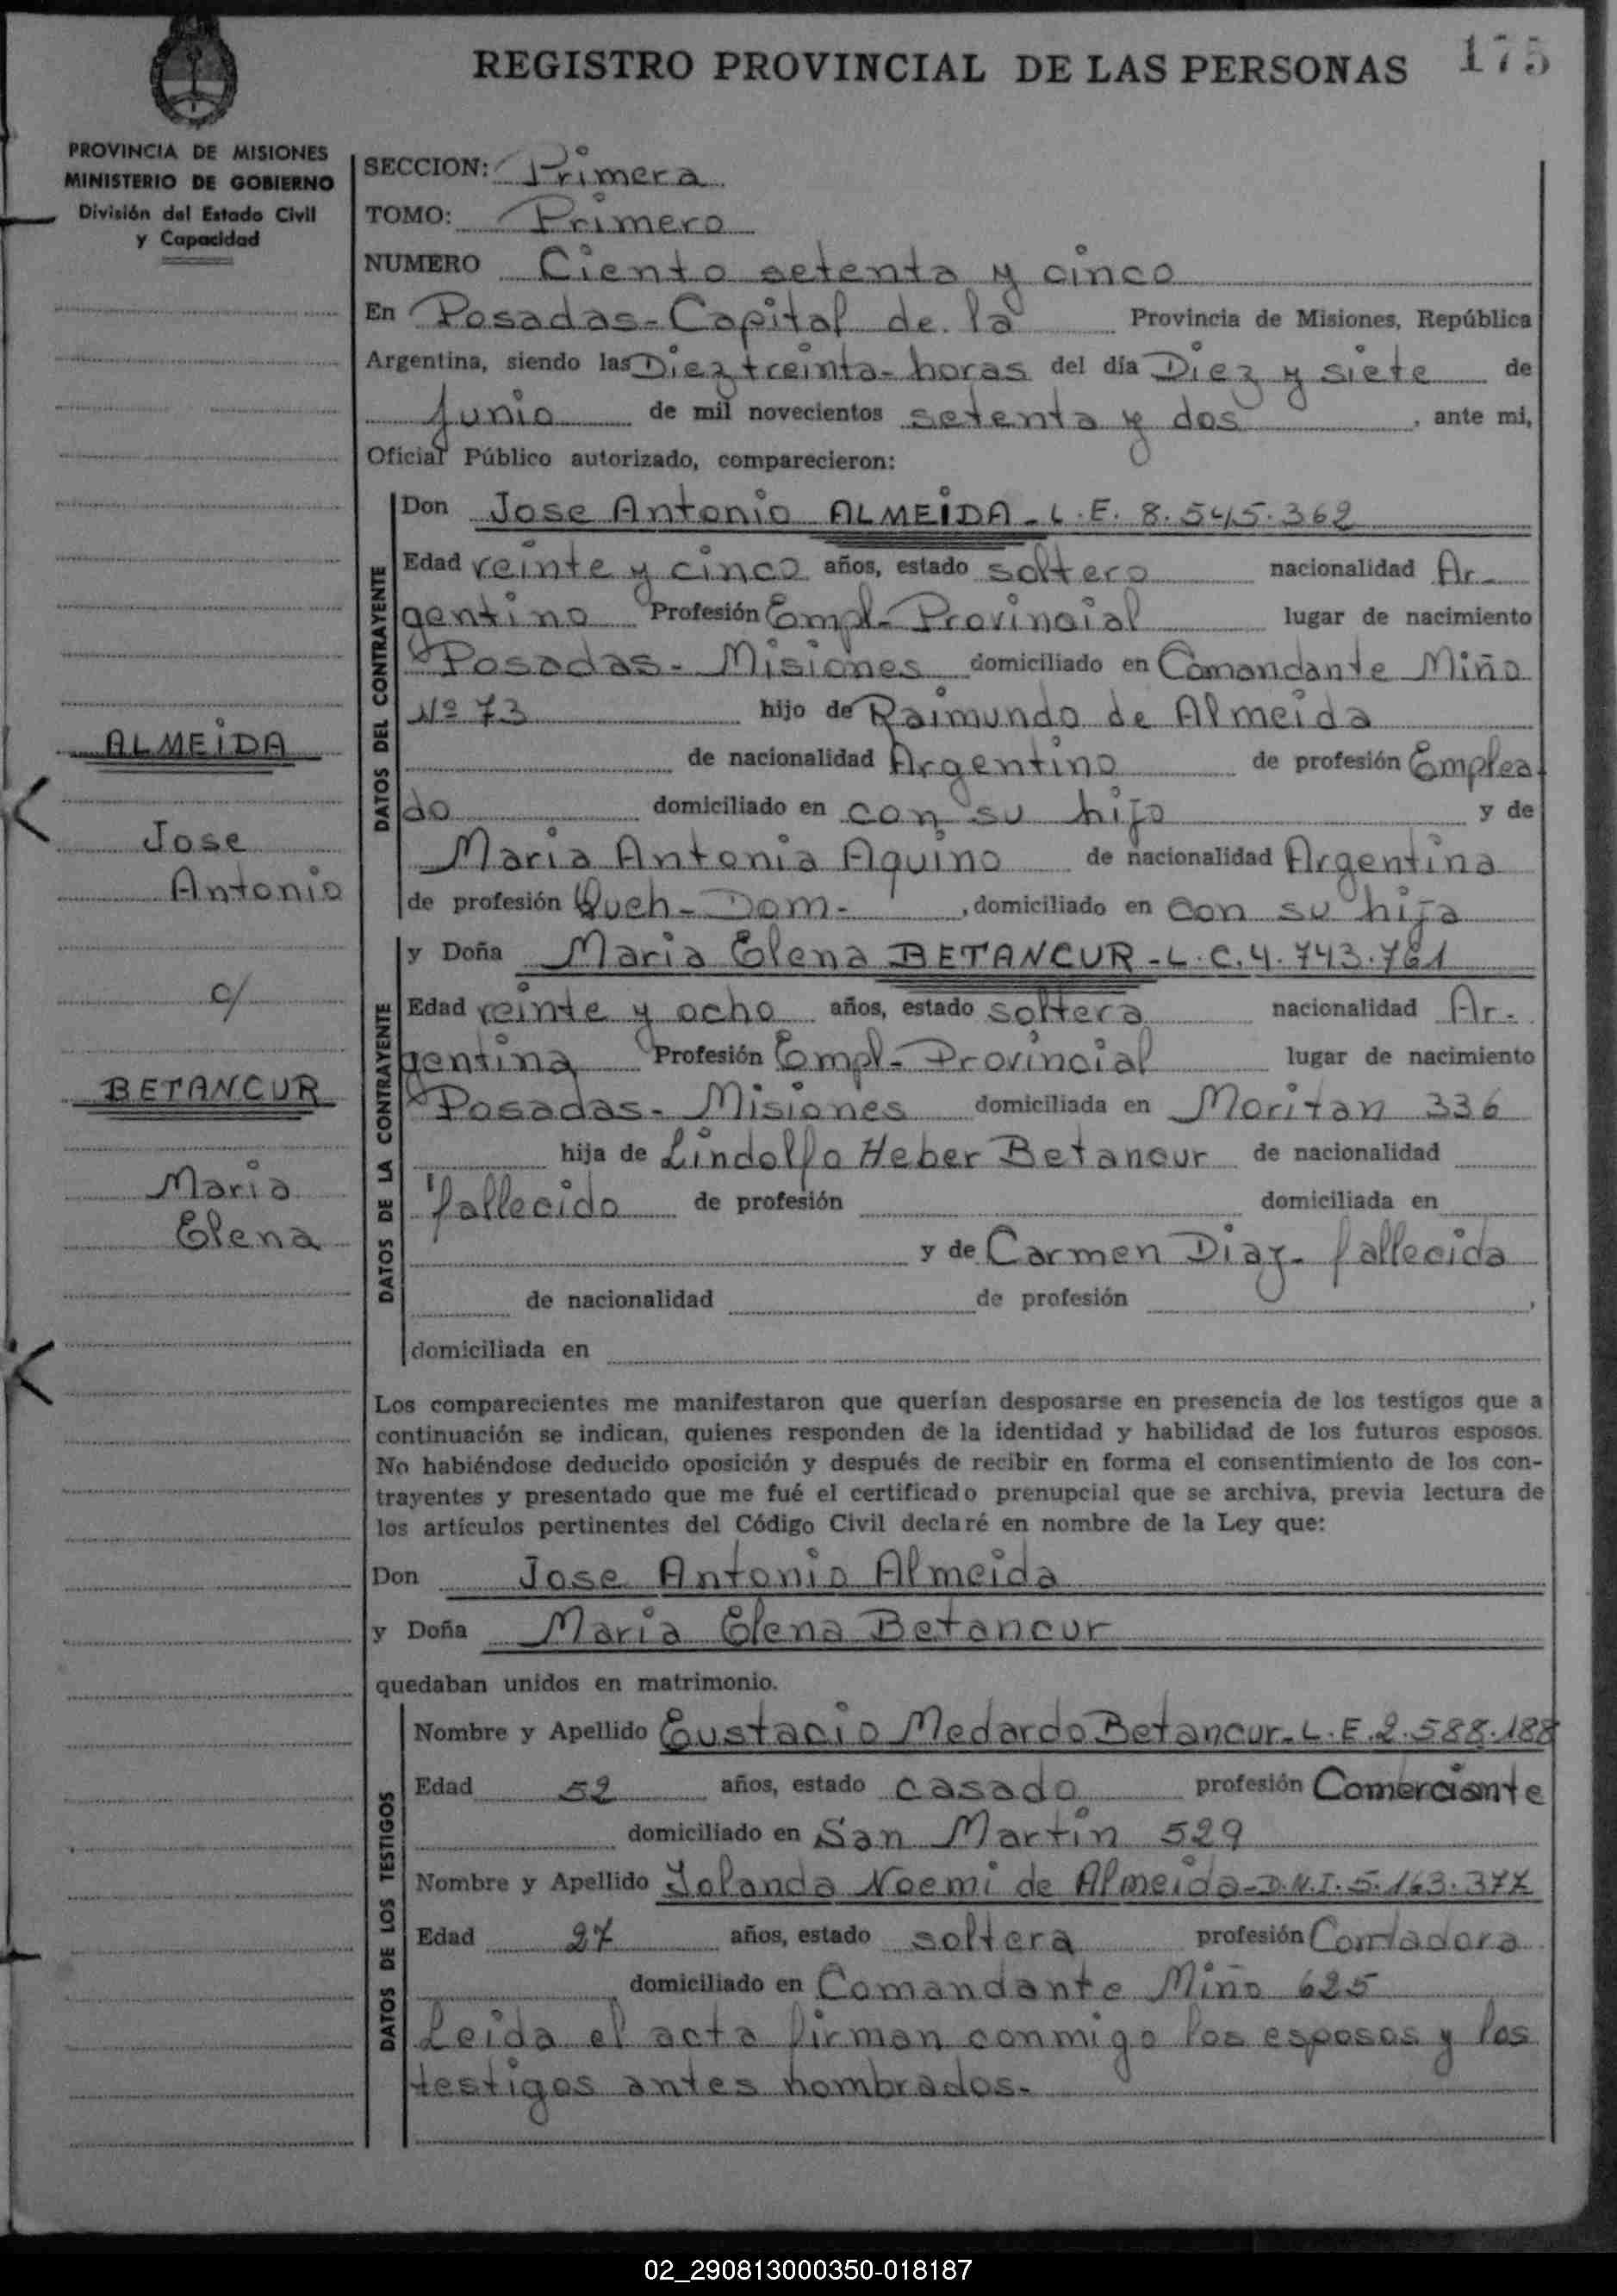 175
REGISTRO PROVINCIAL DE LAS PERSONAS
PROVINCIA DE MISIONES
MINISTERIO DE GOBIERNO
División del Estado Civil
y Capacidad
ALMEIDA
Jose
Antonio
c/
BETANCUR
Maria
Elena
SECCION: Primera
TOMO: Primero
NUMERO Ciento setenta y cinco
En Posadas-Capital de la Provincia de Misiones, República
Argentina, siendo las Diez treinta-horas del día Diez y siete de
Junio de mil novecientos setenta y dos, ante mi,
Oficial Público autorizado, comparecieron:
DATOS DEL CONTRAYENTE
Don Jose Antonio ALMEIDA-L.E. 8.545.362
Edad veinte y cinco años, estado soltero nacionalidad Ar-
gentino Profesión Empl-Provincial lugar de nacimiento
Posadas-Misiones domiciliado en Comandante Miño
Nº 73 hijo de Raimundo de Almeida
de nacionalidad Argentino de profesión Emplea
do domiciliado en con su hijo y de
Maria Antonia Aquino de nacionalidad Argentina
de profesión Queh-Dom-, domiciliado en con su hija
DATOS DE LA CONTRAYENTE
y Doña Maria Elena BETANCUR-L.C.4.743.761
Edad veinte y ocho años, estado soltera nacionalidad Ar-
gentina Profesión Empl-Provincial lugar de nacimiento
Posadas-Misiones domiciliada en Moritan 336
hija de Lindolfo Heber Betancur de nacionalidad
fallecido de profesión domiciliada en
y de Carmen Diaz-fallecida
de nacionalidad de profesión ,
domiciliada en
Los comparecientes me manifestaron que querían desposarse en presencia de los testigos que a
continuación se indican, quienes responden de la identidad y habilidad de los futuros esposos.
No habiéndose deducido oposición y después de recibir en forma el consentimiento de los con-
trayentes y presentado que me fué el certificado prenupcial que se archiva, previa lectura de
los artículos pertinentes del Código Civil declaré en nombre de la Ley que:
Don Jose Antonio Almeida
y Doña Maria Elena Betancur
quedaban unidos en matrimonio.
DATOS DE LOS TESTIGOS
Nombre y Apellido Eustacio Medardo Betancur-L.E.2.588.188
Edad 52 años, estado casado profesión Comerciante
domiciliado en San Martin 529
Nombre y Apellido Yolanda Noemi de Almeida-D.N.I.5.163.377
Edad 27 años, estado soltera profesión Contadora
domiciliado en Comandante Miño 625
Leida el acta firman conmigo los esposos y los
testigos antes nombrados-
02_290813000350-018187